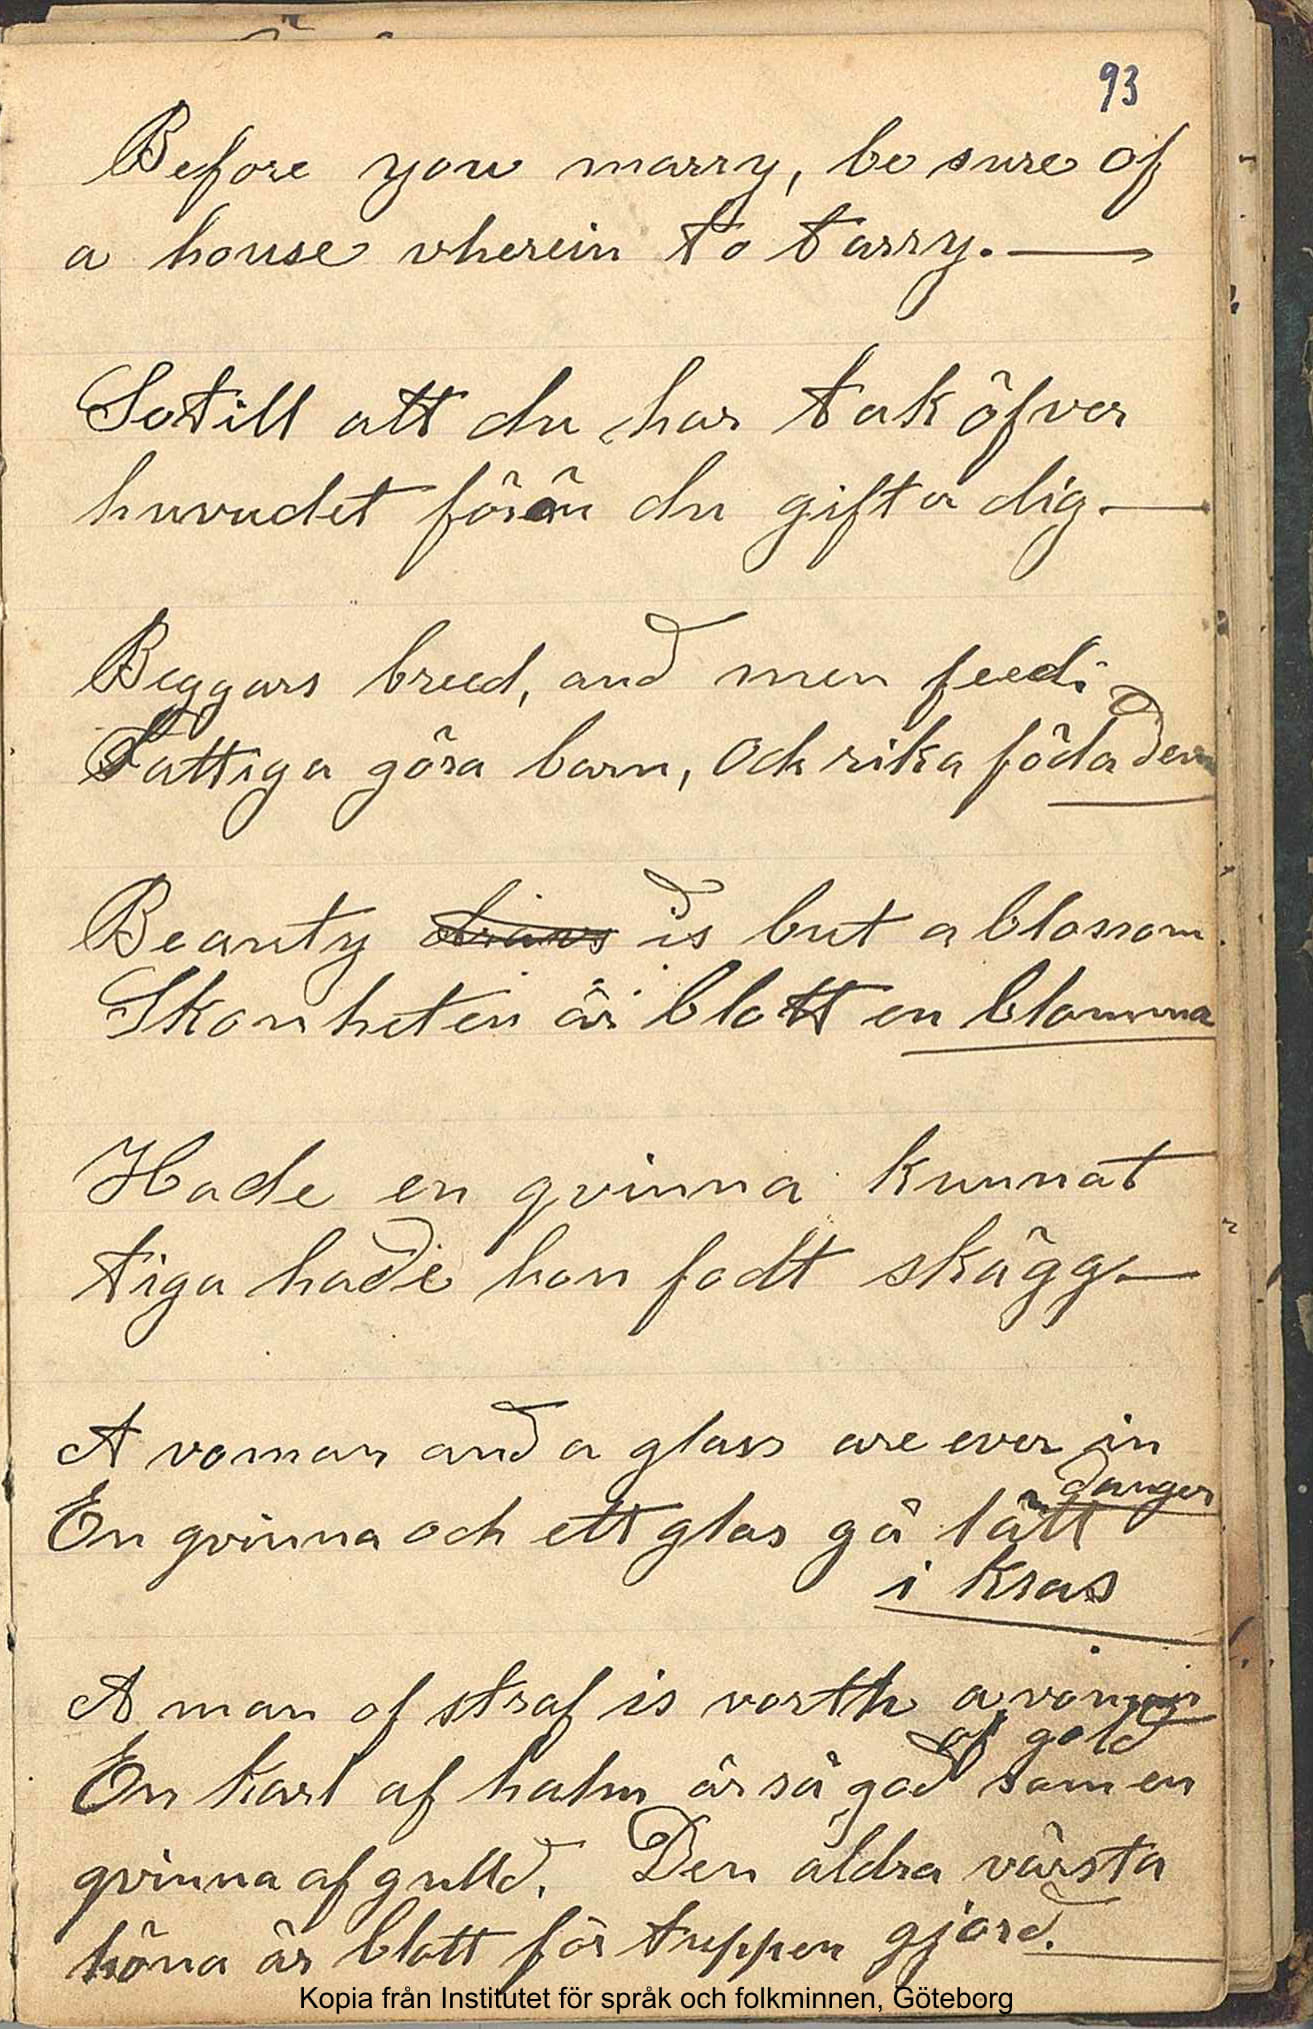 93
Before you marry, be sure of
a house vherein to tarry.—
Se till att du har tak öfver
huvudet förän du gifta dig.—
Beggars breed, and men feed.
Fattiga göra barn, och rika föda dem
Beauty is but a blossom.
Skonheten är blott en blomma
Hade en qvinna kunnat
tiga hade hon fodt skägg—
A voman and a glass are ever in
danger
En qvinna och ett glas gå lätt
i kras
A man of straf is vorth a voman
of gold
En karl af halm är så god som en
qvinna af gulld. Den äldra värsta
höna är blott för tuppen gjord.
Kopia från Institutet för språk och folkminnen, Göteborg